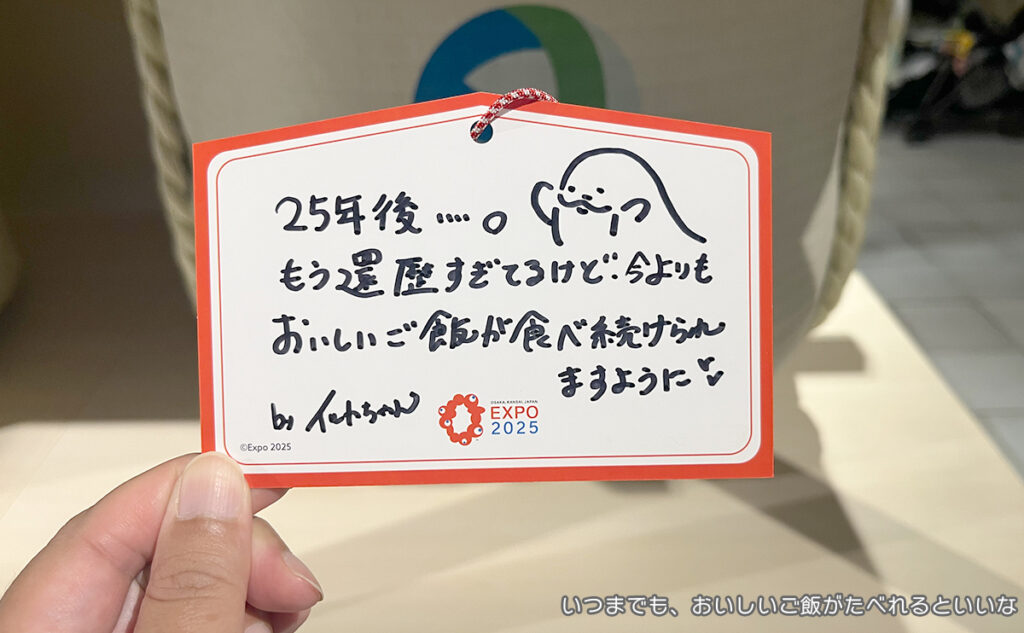 25年後....。
もう還歴すぎてるけど:今よりも
おいしいご飯が食べ続けられ
ますように
by イルカちゃん
OSAKA, KANSAI, JAPAN
EXPO
2025
©Expo 2025
いつまでも、おいしいご飯がたべれるといいな